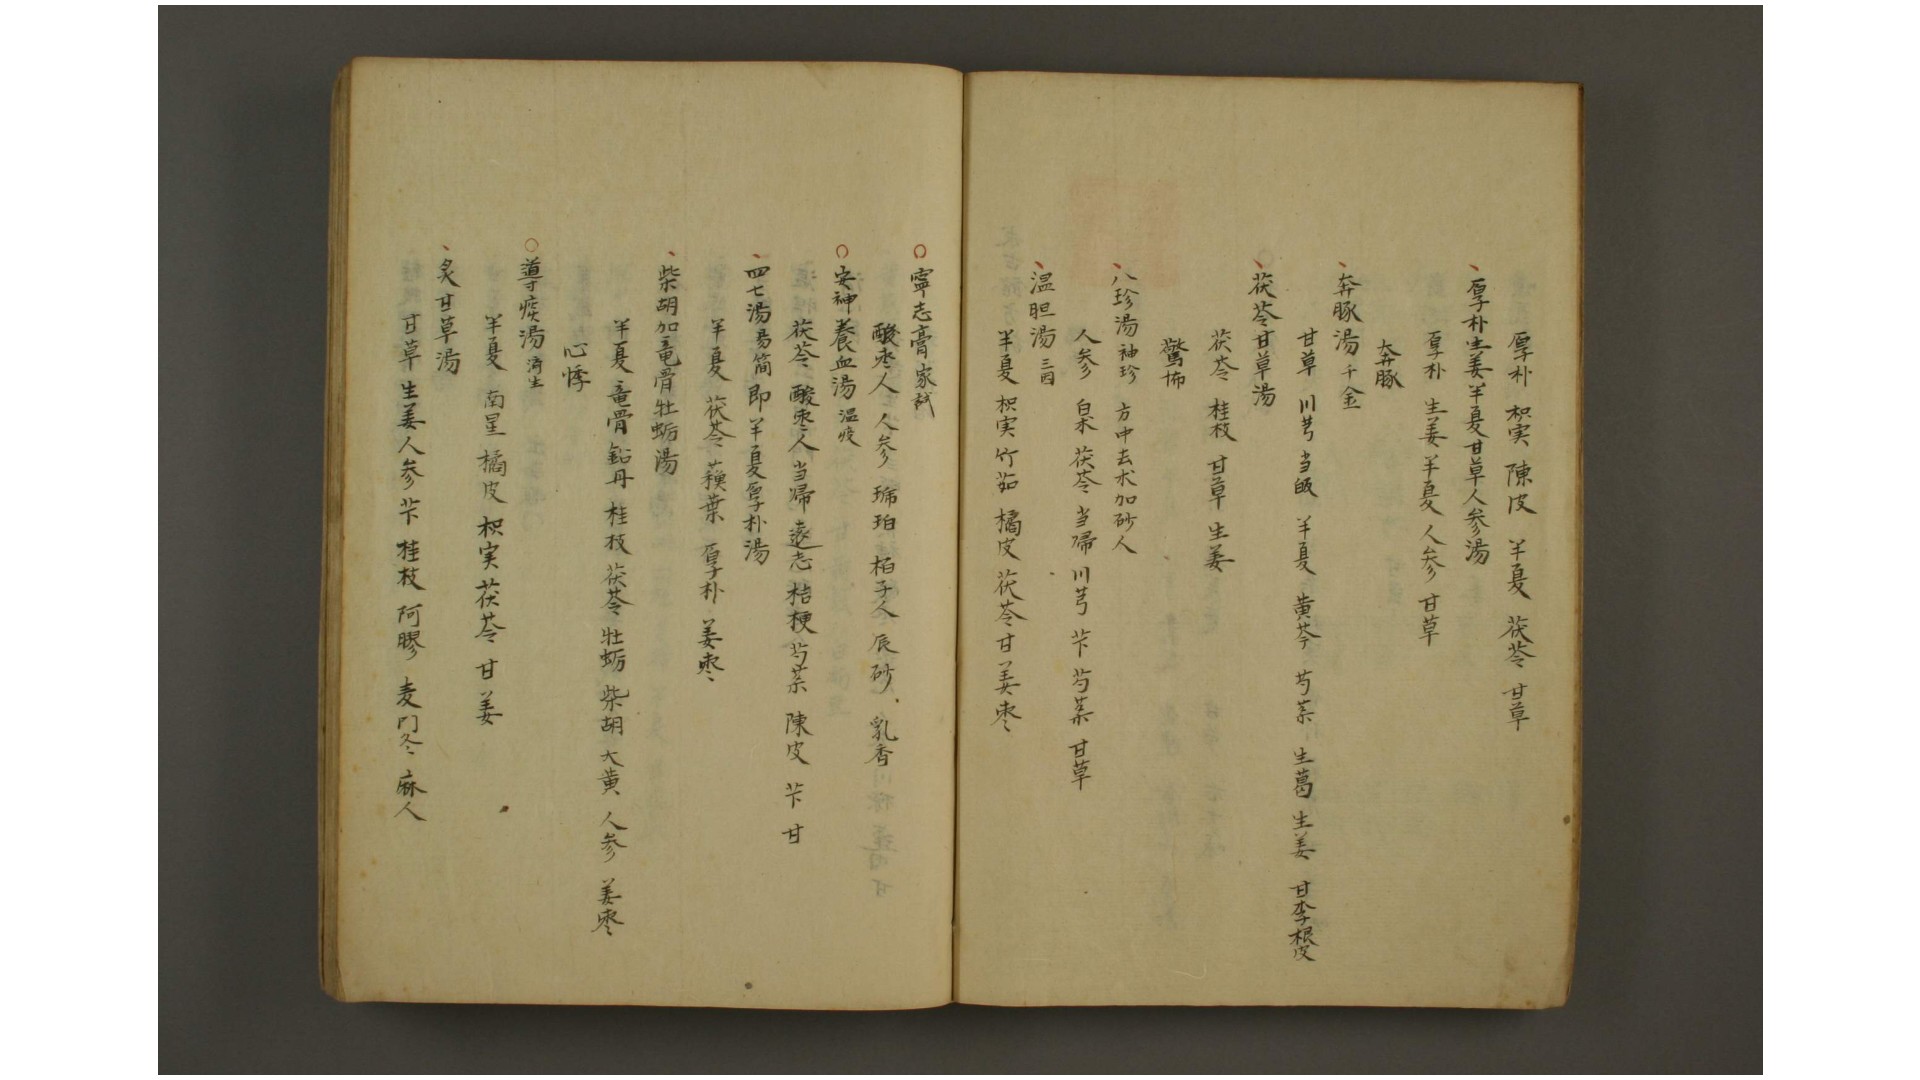 厚朴 枳実 陳皮 半夏 茯苓 甘草
厚朴生姜半夏甘草人参湯
厚朴 生姜 半夏 人参 甘草
奔豚
奔豚湯 千金
甘草 川芎 当皈 半夏 黄芩 芍薬 生葛 生姜 甘李根皮
茯苓甘草湯
茯苓 桂枝 甘草 生姜
驚怖
八珍湯 神珍 方中去朮加砂人
人参 白朮 茯苓 当帰 川芎 芐 芍薬 甘草
温胆湯 三四
半夏 枳実 竹茹 橘皮 茯苓 甘 姜 枣
寧志膏 家試
酸枣人 人参 琥珀 栢子人 辰砂、乳香
安神養血湯 温疫
茯苓 酸枣人 当帰 遠志 桔梗 芍薬 陳皮 芐 甘
四七湯 易簡 即半夏厚朴湯
半夏 茯苓 蘓葉 厚朴 姜枣
柴胡加竜骨牡蛎湯
半夏 竜骨 鉛丹 桂枝 茯苓 牡蛎 柴胡 大黄 人参 姜枣
心悸
導痰湯 済生
半夏 南星 橘皮 枳実 茯苓 甘 姜
炙甘草湯
甘草 生姜 人参 芐 桂枝 阿膠 麦門冬 麻人